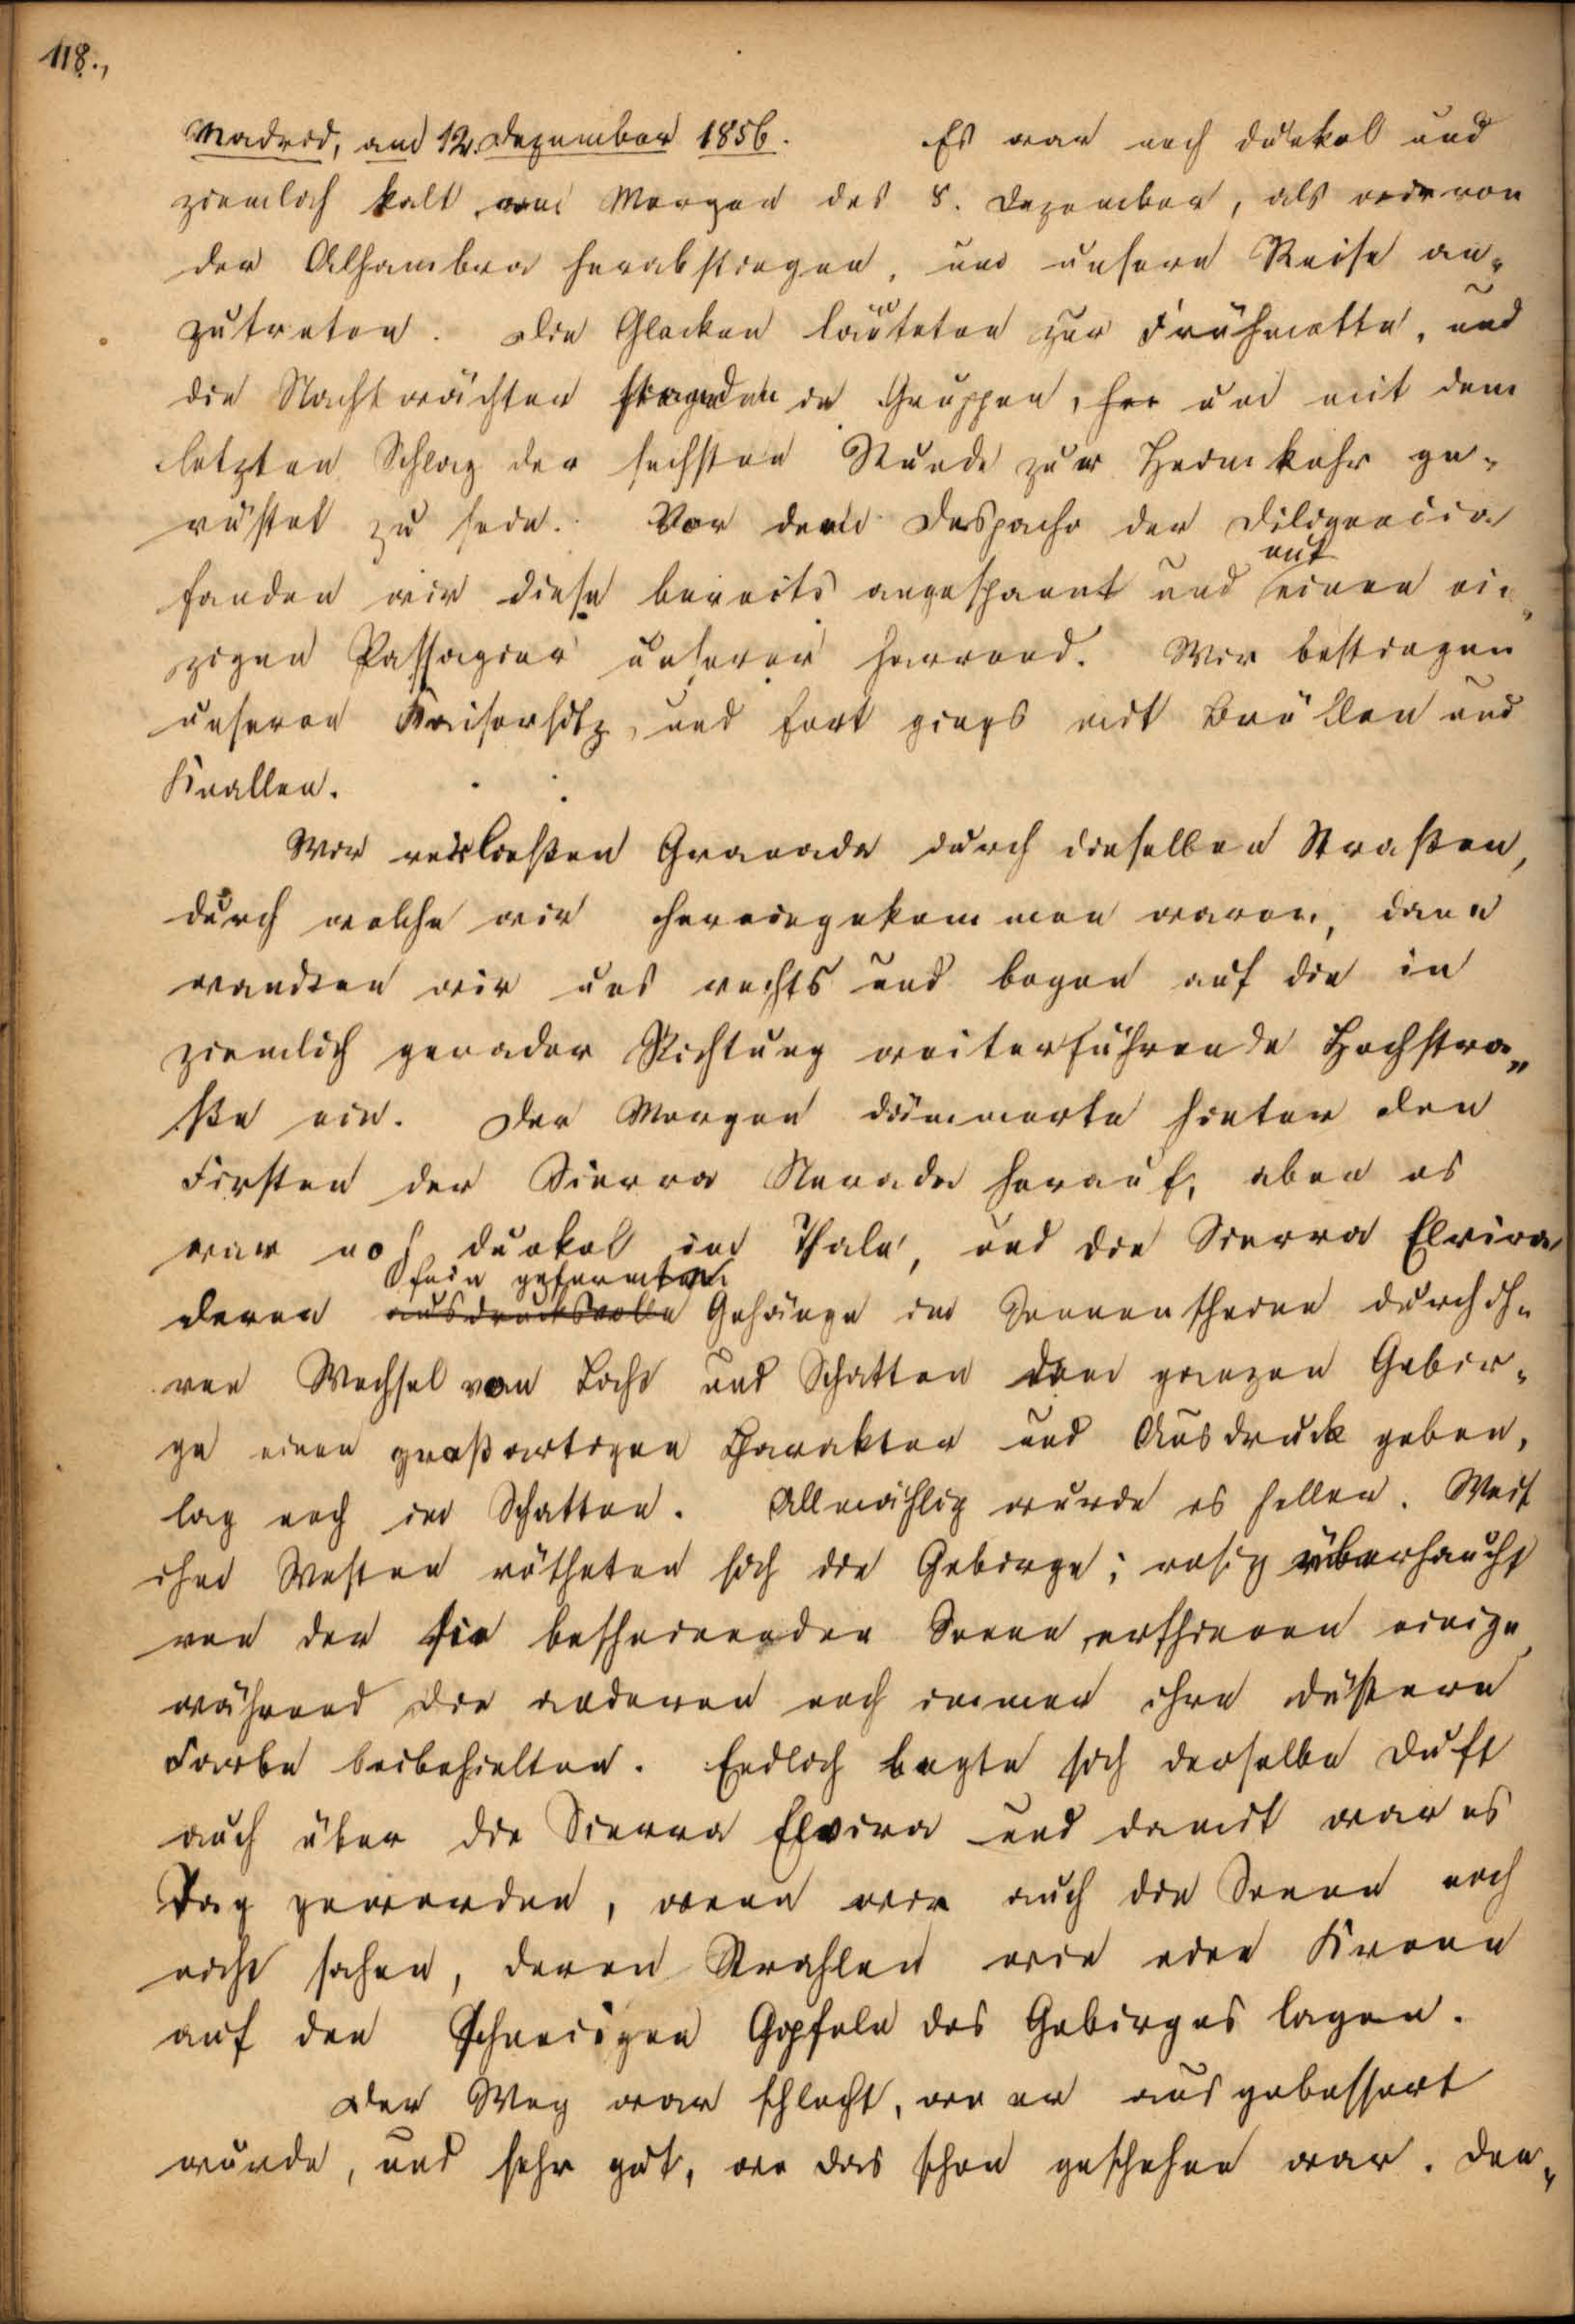 118.,
Madrid, am 12. Dezember 1856. Es war noch dunkel und
ziemlich kalt am Morgen des 8. Dezember, als wir von
der Alhambra herabstiegen, um unsere Reise an-
zutreten. Die Glocken läuteten zur Frühmette, und
die Nachtwächter standen in Gruppen, um mit dem
letzten Schlag der sechsten Stunde zur Heimkehr ge-
rüstet zu sein. Vor dem Despacho der Diligencia
fanden wir diese bereits angespannt und
mit
einen ein-
zigen Passagier unserer harrend. Wir bestiegen
unseren Kaisersitz, und fort gings mit Brüllen und
Knallen.
Wir verließen Granada durch dieselben Straßen,
durch welche wir hereingekommen waren, dann
wandten wir uns rechts und bogen auf die in
ziemlich gerader Richtung weiterführende Hochstra-
ße ein. Der Morgen dämmerte hinter den
Firsten der Sierra Nevada herauf, aber es
war noch dunkel im Thale, und die Sierra Elvira
fein geformten
deren ausdrucksvolle Gehänge im Sonnenscheine durch ih-
ren Wechsel von Licht und Schatten dem ganzen Gebir-
ge einen großartigen Charakter und Ausdruck geben,
lag noch im Schatten. Allmählig wurde es heller. Weit
im Westen rötheten sich die Gebirge; rosig überhaucht
von der sie bescheinenden Sonne erschienen einige,
während die anderen noch immer ihre düstere
Farbe beibehielten. Endlich legte sich derselbe Duft
auch über die Sierra Elvira und damit war es
Tag geworden, wenn wir auch die Sonne noch
nicht sahen, deren Strahlen wie eine Krone
auf den schneeigen Gipfeln des Gebirges lagen.
Der Weg war schlecht, wo er ausgebessert
wurde, und sehr gut, wo das schon geschehen war. Den-